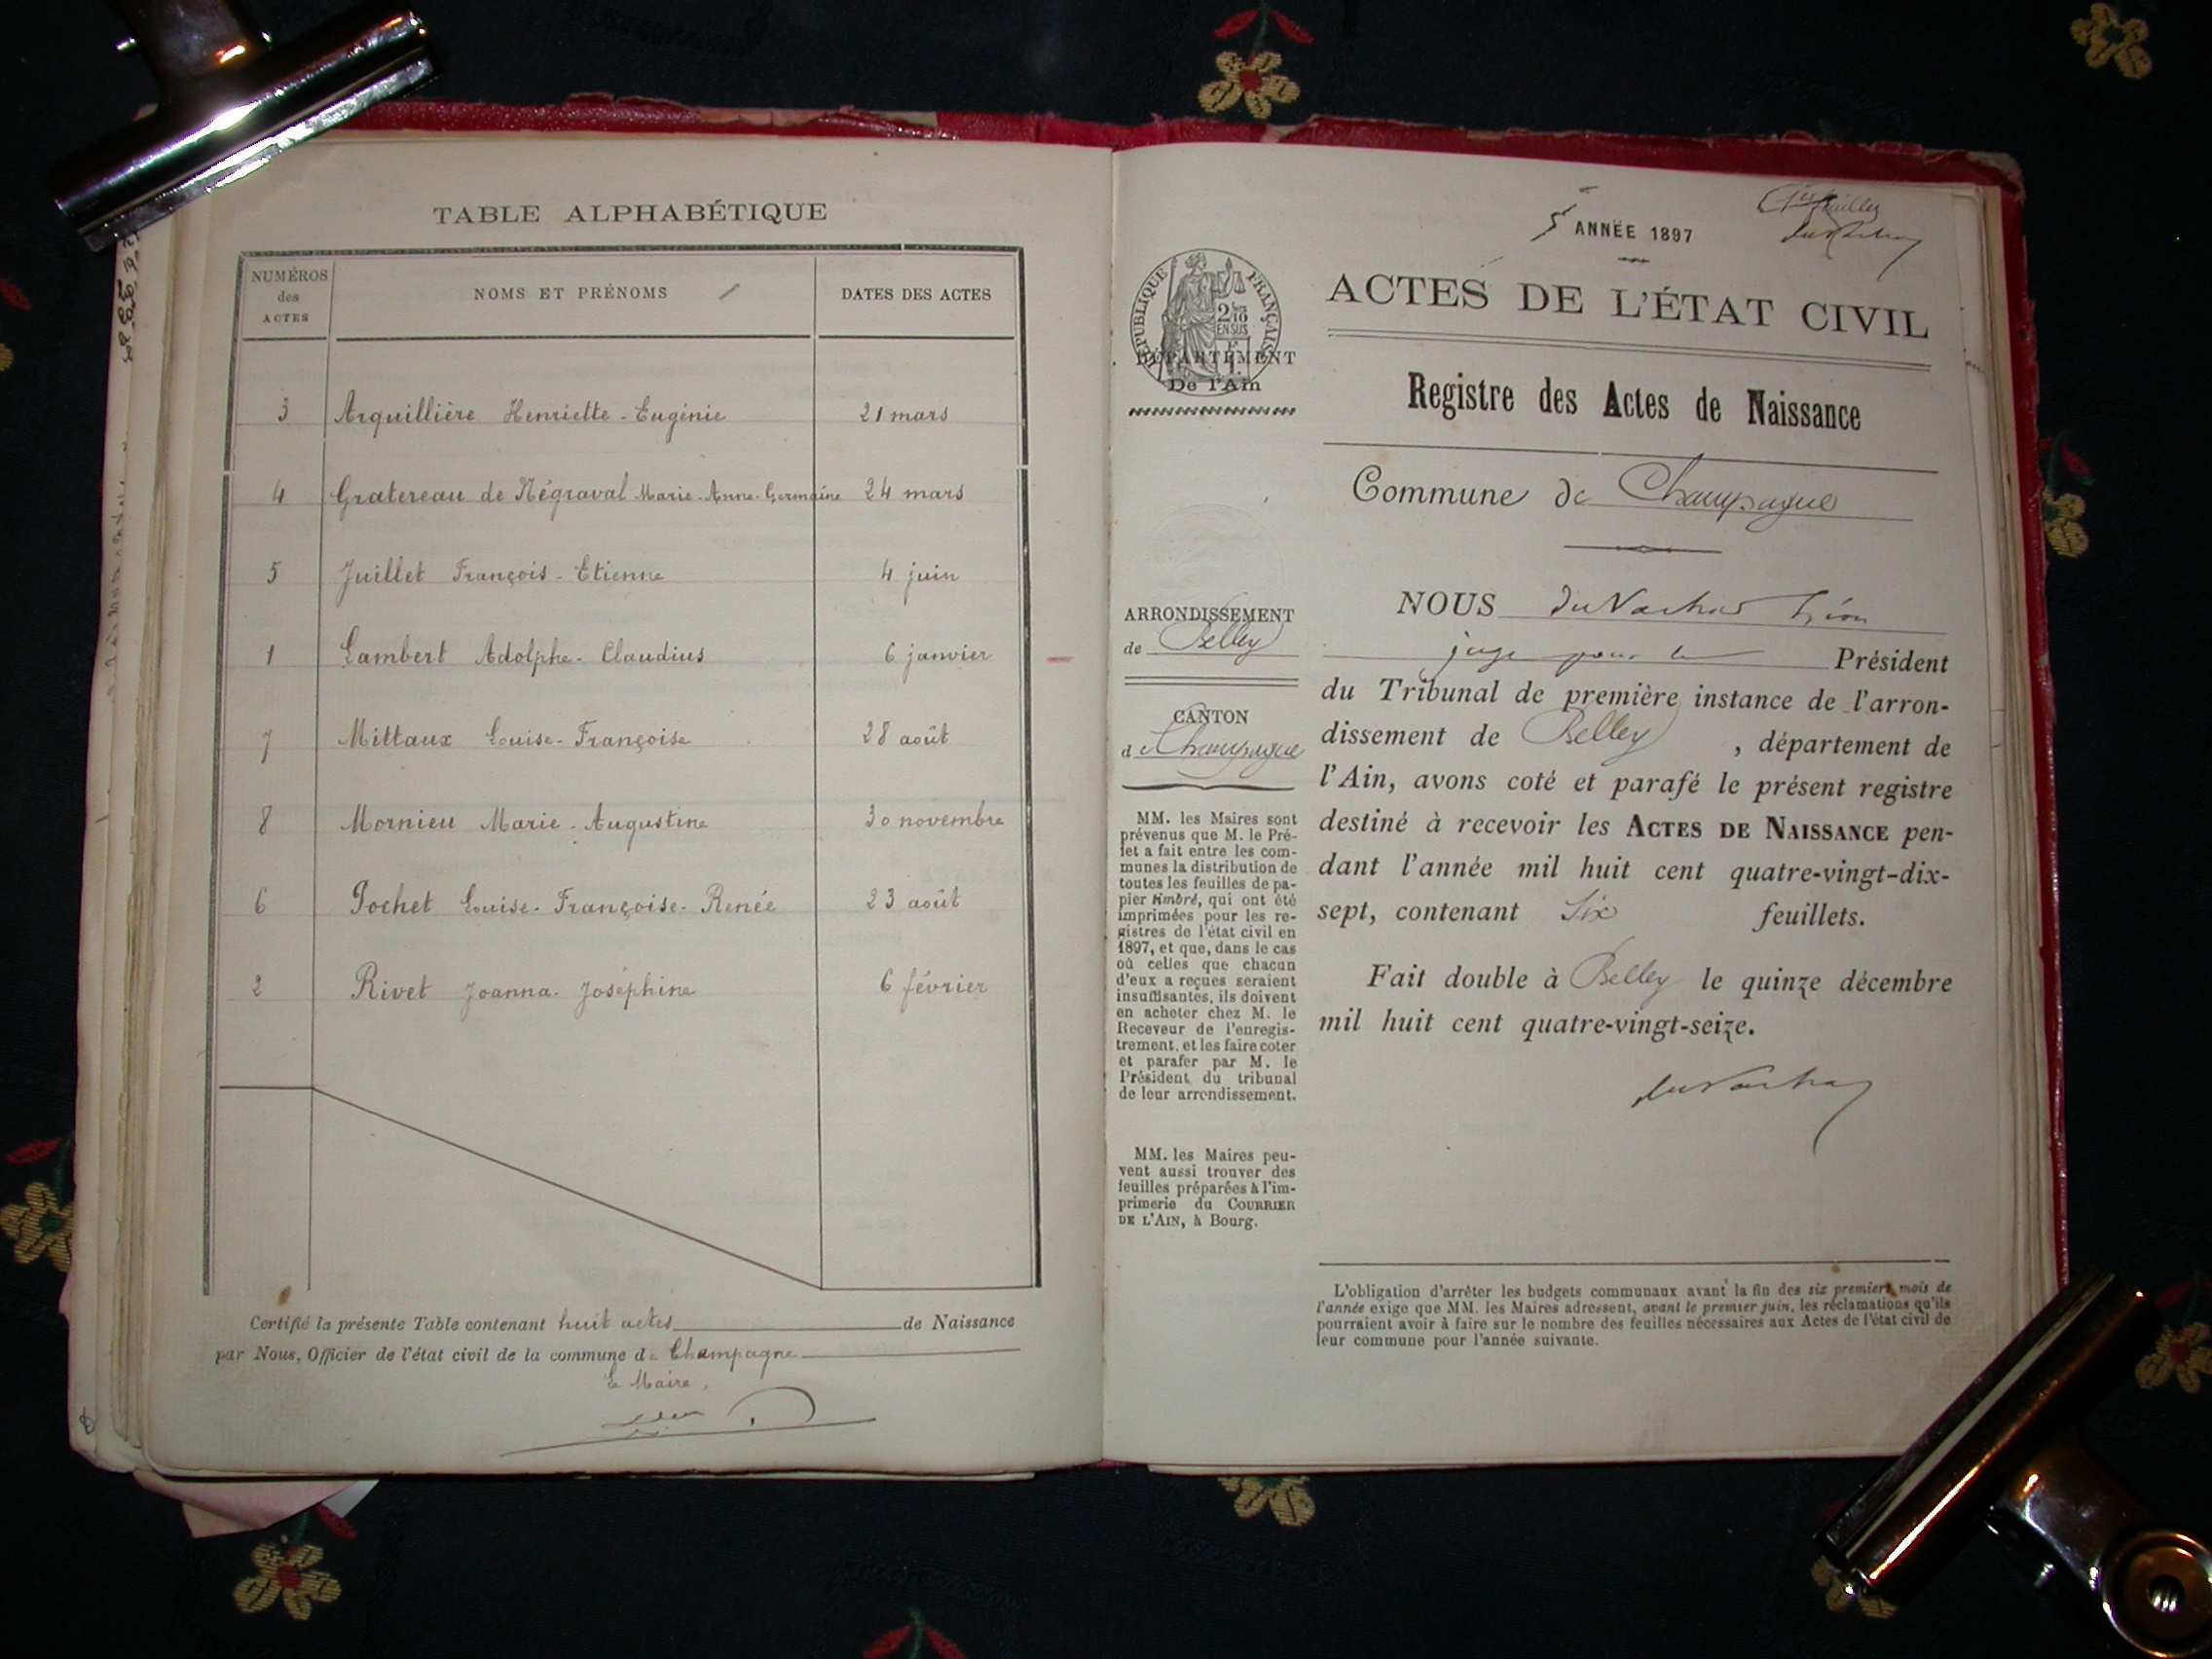 TABLE ALPHABÉTIQUE
NUMÉROS des ACTES
NOMS ET PRÉNOMS
DATES DES ACTES
3 Arquillière Henriette-Eugénie 21 mars
4 Gratereau de Négraval Marie-Anne-Germaine 24 mars
5 Juillet François-Etienne 4 juin
1 Lambert Adolphe-Claudius 6 janvier
7 Mittaux Louise-Françoise 28 août
8 Mornieu Marie-Augustine 30 novembre
6 Pochet Louise-Françoise-Renée 23 août
2 Rivet Joanna-Joséphine 6 février
Certifié la présente Table contenant huit actes de Naissance
par Nous, Officier de l'état civil de la commune de Champagne
Le Maire,
ANNÉE 1897
RÉPUBLIQUE FRANÇAISE
2/10 EN SUS
DÉPARTEMENT
De l'Ain
ARRONDISSEMENT
de Belley
CANTON
de Champagne
MM. les Maires sont
prévenus que M. le Pré-
fet a fait entre les com-
munes la distribution de
toutes les feuilles de pa-
pier timbré, qui ont été
imprimées pour les re-
gistres de l'état civil en
1897, et que, dans le cas
où celles que chacun
d'eux a reçues seraient
insuffisantes, ils doivent
en acheter chez M. le
Receveur de l'enregis-
trement, et les faire coter
et parafer par M. le
Président du tribunal
de leur arrondissement.
MM. les Maires peu-
vent aussi trouver des
feuilles préparées à l'im-
primerie du COURRIER
DE L'AIN, à Bourg.
ACTES DE L'ÉTAT CIVIL
Registre des Actes de Naissance
Commune de Champagne
NOUS Léon
juge pour le Président
du Tribunal de première instance de l'arron-
dissement de Belley, département de
l'Ain, avons coté et parafé le présent registre
destiné à recevoir les ACTES DE NAISSANCE pen-
dant l'année mil huit cent quatre-vingt-dix-
sept, contenant Six feuillets.
Fait double à Belley le quinze décembre
mil huit cent quatre-vingt-seize.
L'obligation d'arrêter les budgets communaux avant la fin des six premiers mois de
l'année exige que MM. les Maires adressent, avant le premier juin, les réclamations qu'ils
pourraient avoir à faire sur le nombre des feuilles nécessaires aux Actes de l'état civil de
leur commune pour l'année suivante.